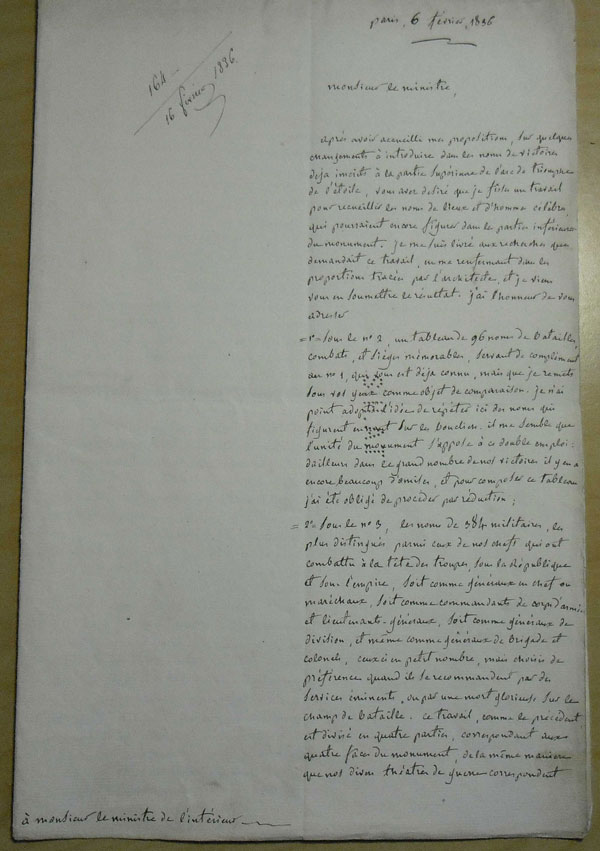 paris, 6 février, 1836
164
16 février 1836.
monsieur le ministre,
après avoir accueilli mes propositions, sur quelques
changements à introduire dans les noms de victoires
déja inscrits à la partie supérieure de l'arc de triomphe
de l'étoile, vous avez désiré que je fisse un travail
pour recueillir les noms de lieux et d'hommes célèbres,
qui pourraient encore figurer dans les parties inférieures
du monument. je me suis livré aux recherches que
demandait ce travail, en me renfermant dans les
proportions tracées par l'architecte, et je viens
vous en soumettre le résultat. j'ai l'honneur de vous
adresser
= 1° = sous le n° 2, un tableau de 96 noms de batailles,
combats, et sièges mémorables, servant de complément
au n° 1, qui vous est déja connu, mais que je remets
sous vos yeux comme objet de comparaison. je n'ai
point adopté l'idée de répéter ici des noms qui
figurent en haut sur les boucliers. il me semble que
l'unité du monument s'oppose à ce double emploi:
d'ailleurs dans le grand nombre de nos victoires il y en a
encore beaucoup d'omises, et pour composer ce tableau
j'ai été obligé de procéder par réduction;
= 2° = sous le n° 3, les noms de 384 militaires, les
plus distingués parmi ceux de nos chefs qui ont
combattu à la tête des troupes, sous la République
et sous l'empire, soit comme généraux en chef ou
maréchaux, soit comme commandants de corps d'armée
et lieutenants-généraux, soit comme généraux de
division, et même comme généraux de brigade et
colonels, ceux ci en petit nombre, mais choisis de
préférence quand ils se recommandent par des
services éminents, ou par une mort glorieuse sur le
champ de bataille. ce travail, comme le précédent
est divisé en quatre parties, correspondant aux
quatre faces du monument, de la même manière
que nos divers théâtres de guerre correspondent
à monsieur le ministre de l'intérieur